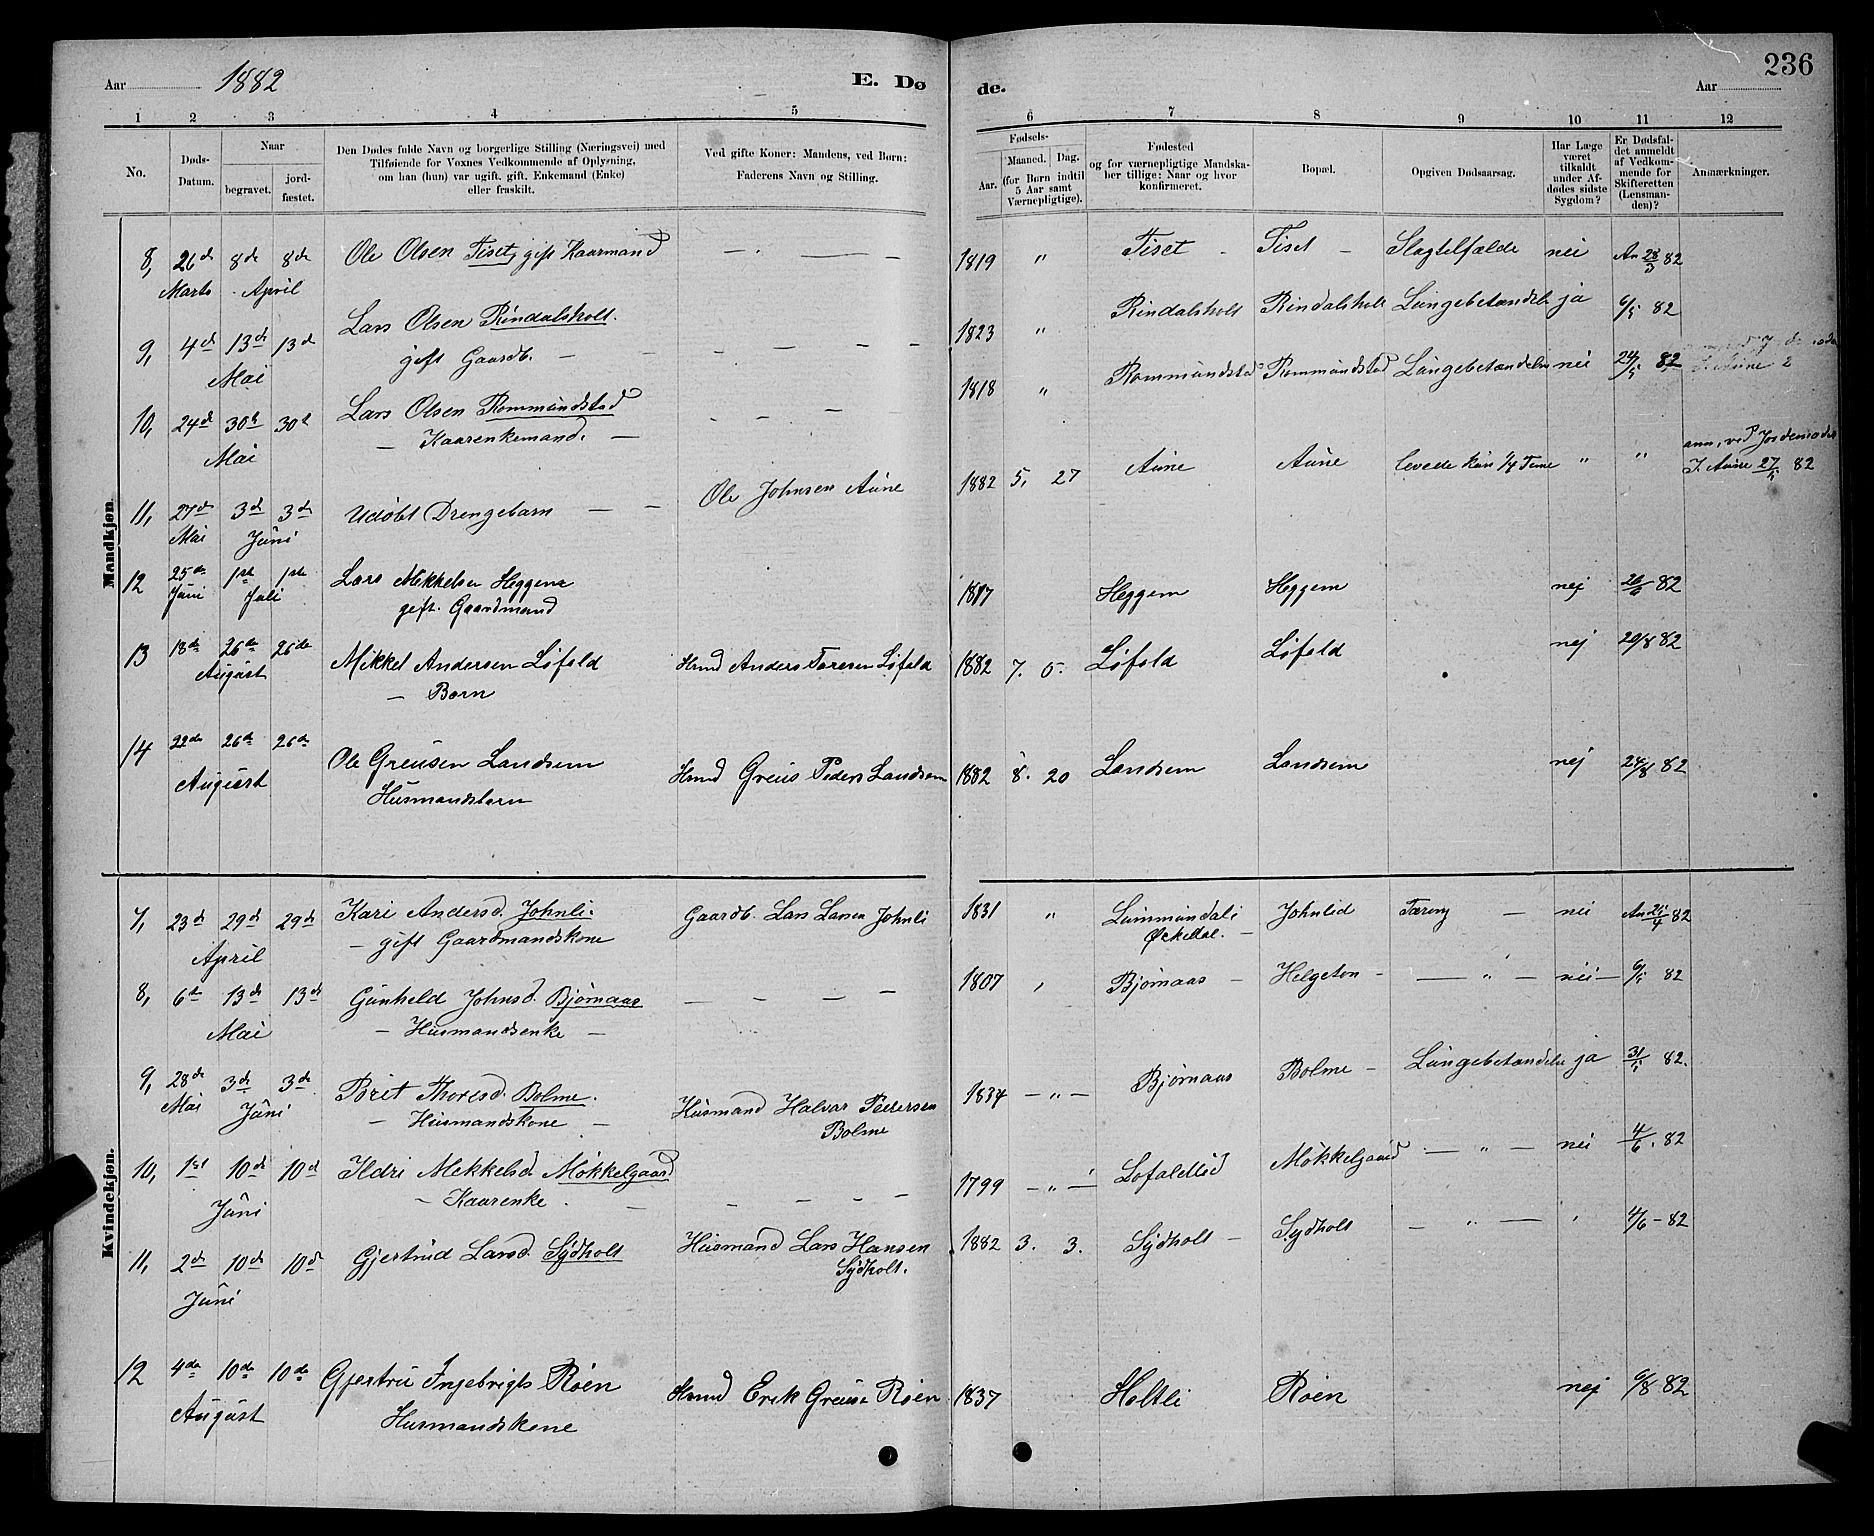 236
Aar 1882 E. Dø de. Aar
1 2 3 4 5 6 7 8 9 10 11 12
No. Døds-Datum. Naar begravet. jord-fæstet. Den Dødes fulde Navn og borgerlige Stilling (Næringsvei) med Tilføiende for Voxnes Vedkommende af Oplysning, om han (hun) var ugift, gift, Enkemand (Enke) eller fraskilt. Ved gifte Koner: Mandens, ved Børn: Faderens Navn og Stilling. Fødsels- Aar. Maaned. Dag. (for Børn indtil 5 Aar samt Værnepligtige). Fødested og for værnepligtige Mandska-ber tillige: Naar og hvor konfirmeret. Bopæl. Opgiven Dødsaarsag. Har Læge været tilkaldt under Af-dødes sidste Sygdom? Er Dødsfal-det anmeldt af Vedkom-mende for Skifteretten (Lensman-den)? Anmærkninger.
Mandkjøn
8, 26de 8de 8de Ole Olsen Tiset, gift Kaarmand — — — 1819 " Tiset - Tiset — Slagtilfælde nei An 28/3 82
Marts April
9, 4de 13de 13de Lars Olsen Rindalsholt. 1823 " Rindalsholt Rindalsholt Lungebetændelse ja 6/5 82
Mai gift Gaardb. — — — — —
10, 24de 30te 30te Lars Olsen Rommundstad — — — 1818 " Rommundstad Rommundstad Lungebetændelse nei 24/5 82
Mai — Kaarenkemand. —
11, 27de 3de 3de Udøbt Drengebarn — — Ole Johnsen Aune 1882 5, 27 Aune Aune levede kun 1/4 Time " " anm. ved Jordemoder
Mai Juni I. Aune 27/5 82
12 25de 1ste 1ste Lars Mikkelsen Heggem 1817 Heggem Heggem nej 26/6 82
Juni Juli gift. Gaardmand
13 18de 26de 26de Mikkel Andersen Løfold Hmd Anders Toresen Løfold 1882 7. 5. Løfold Løfold nej 20/8 82
August — Barn
14 22de 26de 26de Ole Greusen Landsem Hmd Greus Peders Landsem 1882 8. 20 Landsem Landsem nej 24/8 82
August Husmandsbarn
Kvindekjøn.
7, 23de 29de 29de Kari Andersd. Johnli. Gaardb. Lars Larsen Johnli 1831 " Johnlid Tæring — nei An 25/4 82
April — gift Gaardmandskone
8, 6te 13de 13de Gunhild Johnsd. Bjørnaas — — — — 1807 Bjørnaas — Helgeton — — " — nei — 6/5 82
Mai — Husmandsenke —
9, 28de 3de 3de Børet Thoresd. Bolme. Husmand Halvar Pedersen 1834 — " — Bjørnaas Bolme — Lungebetændelse ja 31/5 82.
Mai Juni — Husmandskone — Bolme
10, 1ste 10de 10de Ildri Mekkelsd. Møkkelgaard — — — — 1799 — " — Møkkelgaard — " — nei 4/6 82
Juni — Kaarenke.
11, 2de 10de 10de Gjertrud Larsd. Sydholt Husmand Lars Hansen 1882 3. 3. Sydholt — Sydholt — " — 4/6 - 82
Juni Sydholt.
12 4de 10de 10de Gjertru Ingebrigts Røen Hmd Erik Greuse Røen 1837 Holtli Røen nej 6/8 82
August Husmandskone